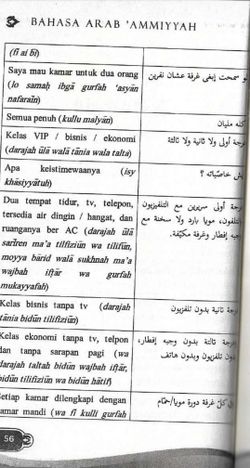 BAHASA ARAB 'AMMIYYAH
(fī ai bī)
Saya mau kamar untuk dua orang
(lo samaḥ ibgā gurfah 'asyān
nafaraīn)
سمحت إبغى غرفة عشان نفرين
Semua penuh (kullu malyān)
كله مليان
Kelas VIP / bisnis / ekonomi
(darajah ūlā walā tānia wala talta)
أولى ولا ثانية ولا ثالثة
Apa keistimewaanya (isy
khāsiyyātuh)
خاصّياته ؟
Dua tempat tidur, tv, telepon,
tersedia air dingin / hangat, dan
ruangannya ber AC (darajah ūlā
sarīren ma'a tilfiziūn wa tilifūn,
moyya bārid walā sukhnah ma'a
wajbah iftār wa gurfah
mukayyafah)
أولى سريرين مع التلفزيون
مويا بارد ولا سخنة مع
إفطار وغرفة مكيّفة.
Kelas bisnis tanpa tv (darajah
tānia bidūn tilifiziūn)
ثانية بدون تلفزيون
Kelas ekonomi tanpa tv, telpon
dan tanpa sarapan pagi (wa
darajah taltah bidūn wajbah iftār,
bidūn tilifiziūn wa bidūn hātif)
ثالثة بدون وجبه إفطار،
تلفزيون وبدون هاتف
Setiap kamar dilengkapi dengan
kamar mandi (wa fi kulli gurfah
كلّ غرفة دورة مويا/حمّام
56